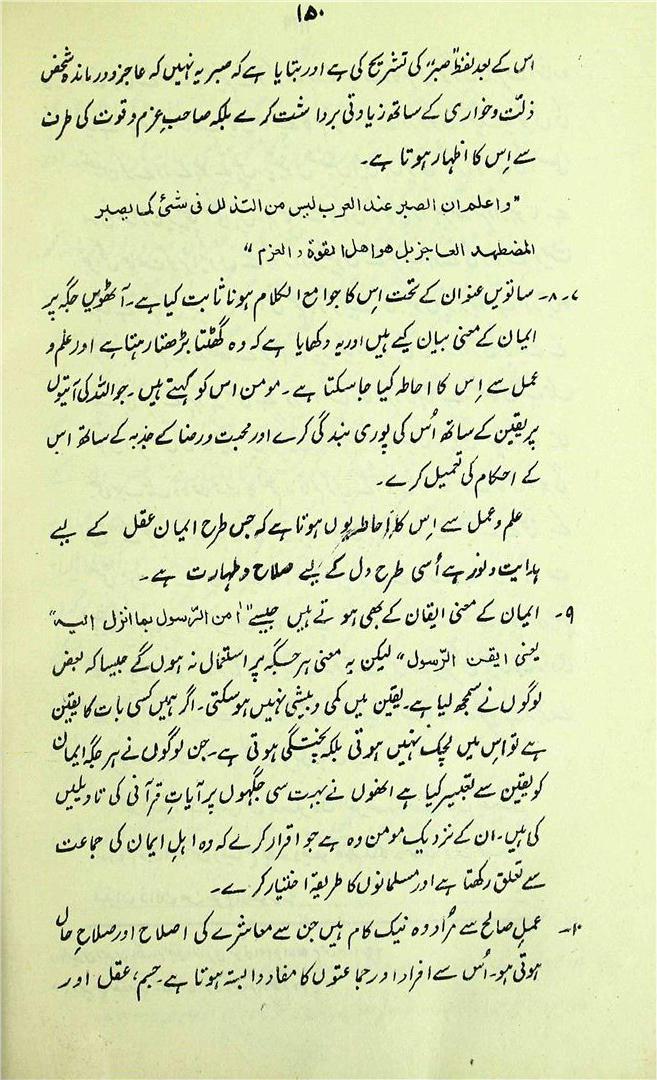 ۱۵۰
اس کے بعد لفظ "صبر" کی تشریح کی ہے اور بتایا ہے کہ صبر یہ نہیں کہ عاجز و درماندہ شخص
ذلّت و خواری کے ساتھ زیادتی برداشت کرے بلکہ صاحبِ عزم و قوت کی طرف
سے اِس کا اظہار ہوتا ہے۔
"واعلم ان الصبر عند العرب لیس من التذلل فی شئ کما یصبر
المضطهد العاجز بل هو اهل القوة و العزم"
۷۔۸۔ ساتویں عنوان کے تحت اِس کا جوامع الکلام ہونا ثابت کیا ہے۔ آٹھویں جگہ پر
ایمان کے معنی بیان کیے ہیں اور یہ دکھایا ہے کہ وہ گھٹتا بڑھتا رہتا ہے اور علم و
عمل سے اِس کا احاطہ کیا جا سکتا ہے۔ مومن اس کو کہتے ہیں۔ جو اللہ کی آیتوں
پر یقین کے ساتھ اُس کی پوری بندگی کرے اور محبت و رضا کے جذبہ کے ساتھ اس
کے احکام کی تعمیل کرے۔
علم و عمل سے اِس کا احاطہ یوں ہوتا ہے کہ جس طرح ایمان عقل کے لیے
ہدایت و نور ہے اُسی طرح دل کے لیے صلاح و طہارت ہے۔
۹۔ ایمان کے معنی ایقان کے بھی ہوتے ہیں جیسے "اٰمن الرّسول بما انزل الیه"
یعنی ایقن الرّسول" لیکن یہ معنی ہر جگہ پر استعمال نہ ہوں گے جیسا کہ بعض
لوگوں نے سمجھ لیا ہے۔ یقین میں کمی و بیشی نہیں ہو سکتی۔ اگر ہمیں کسی بات کا یقین
ہے تو اس میں لچک نہیں ہوتی بلکہ پختگی ہوتی ہے۔ جن لوگوں نے ہر جگہ ایمان
کو یقین سے تعبیر کیا ہے انھوں نے بہت سی جگہوں پر آیاتِ قرآنی کی تاویلیں
کی ہیں۔ ان کے نزدیک مومن وہ ہے جو اقرار کرے کہ وہ اہلِ ایمان کی جماعت
سے تعلق رکھتا ہے اور مسلمانوں کا طریقہ اختیار کرے۔
۱۰۔ عملِ صالح سے مُراد وہ نیک کام ہیں جن سے معاشرے کی اصلاح اور صلاحِ حال
ہوتی ہو۔ اُس سے افراد اور جماعتوں کا مفاد وابستہ ہوتا ہے۔ جسم، عقل اور